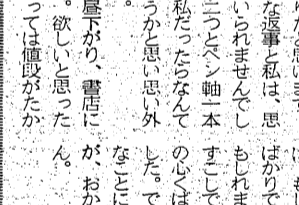 な返事と私は、思
いられませんでし
二つとペン軸一本
私だったらなんて
うかと思い思い外
。
昼下がり、書店に
。欲しいと思った
っては値段がたか
ばかりで
もしれま
すこしで
の心くば
した。で
なことに
が、おか
ん。